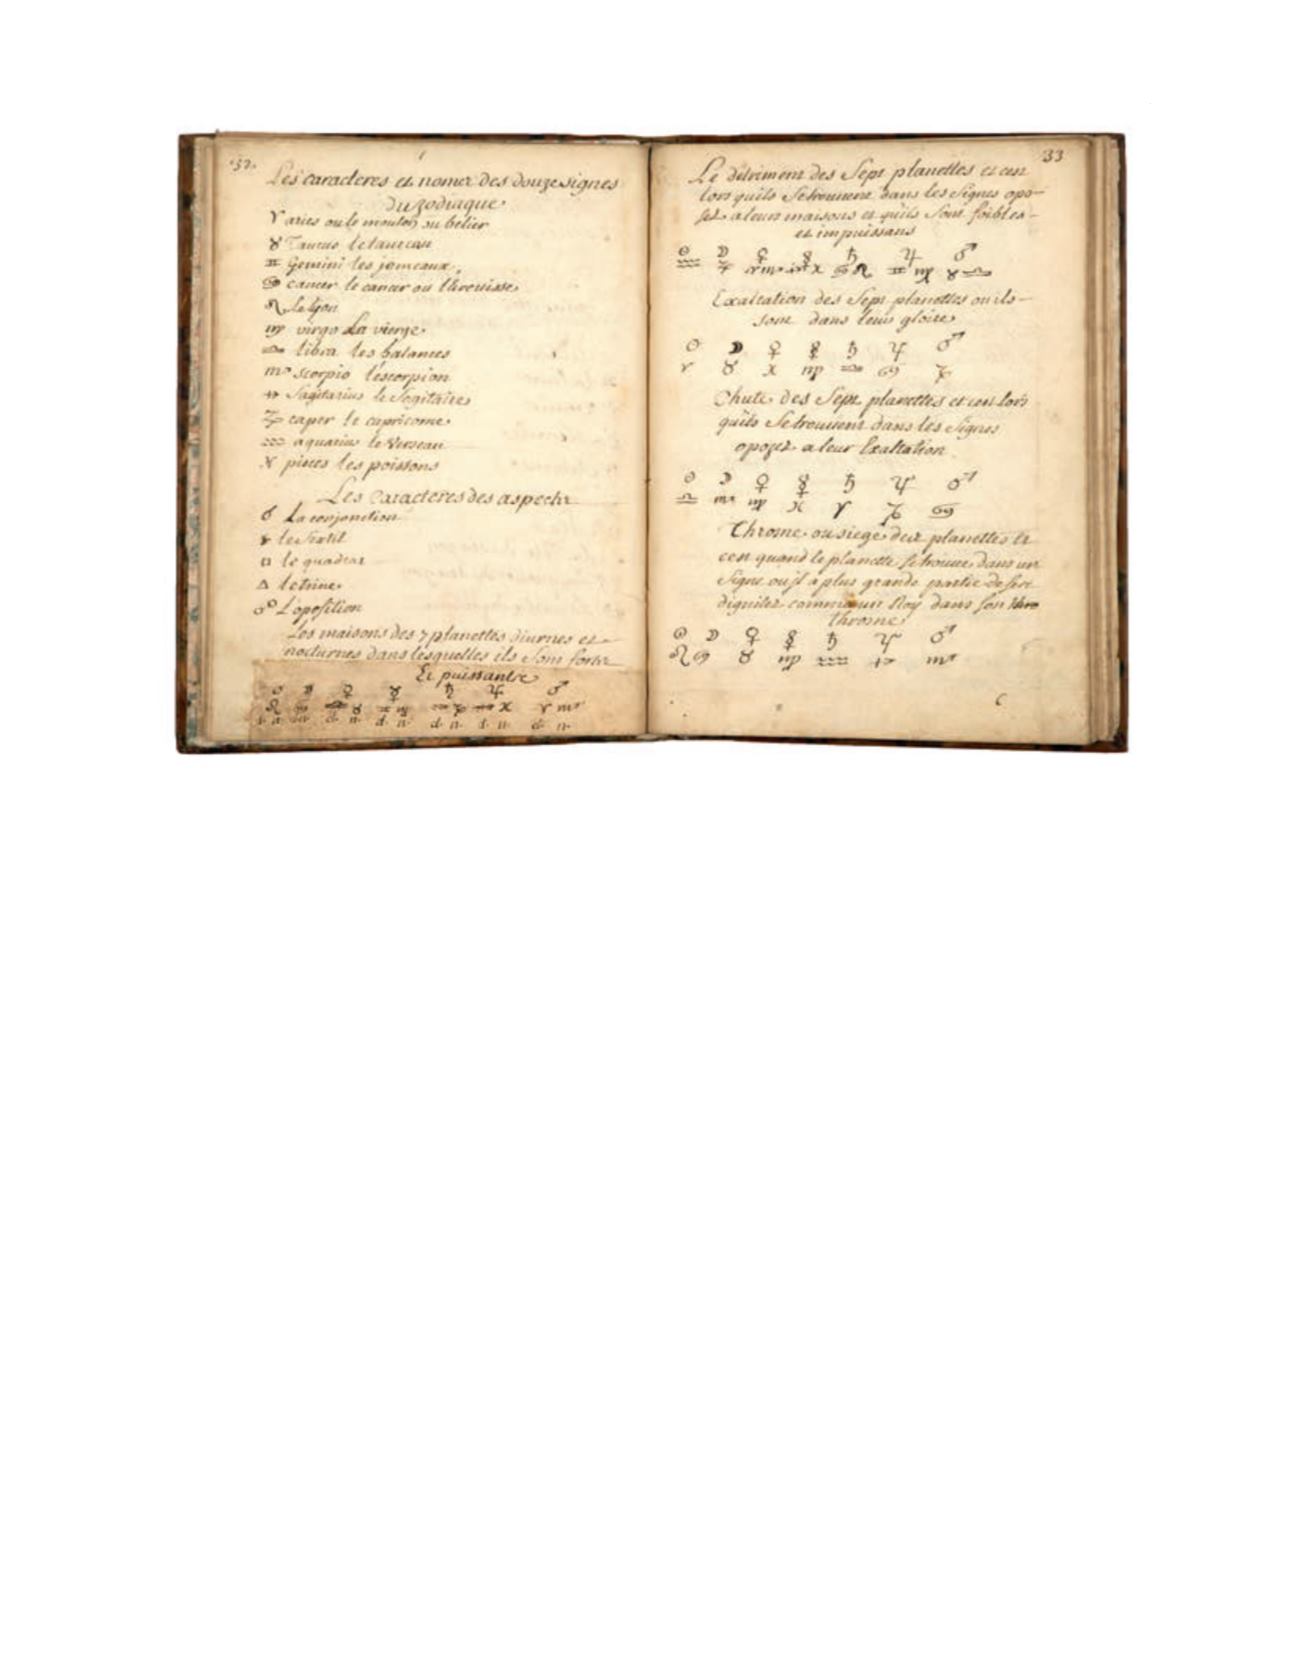 32.
Les caracteres et nomez des douze signes
du zodiaque
♈ aries ou le mouton ou belier
♉ Taurus le taureau
♊ Gemini les jemeaux
♋ cancer le cancer ou
♌ le lyon
♍ virgo La vierge
♎ libra les balances
♏ scorpio l'escorpion
♐ Sagitarius le Sagitaire
♑ caper le capricorne
♒ aquarius le Verseau
♓ pisces les poissons
Les Caracteres des aspects
☌ La conjonction
⚹ le Sextil
□ le quadrat
△ le trine
☍ L'oposition
Les maisons des 7 planettes diurnes et
nocturnes dans lesquelles ils Sont forts
Et puissants
☉ ☽ ♀ ☿ ♄ ♃ ♂
♌ ♋ ♎ ♉ ♊ ♍ ♒ ♑ ♐ ♓ ♈ ♏
d. n. d. n. d. n. d. n. d. n.
33
Le detriment des Sept planettes et cest
lors quils Se trouvent dans les Signes opo-
sez a leurs maisons et quils Sont foibles
et impuissans
☉ ☽ ♀ ☿ ♄ ♃ ♂
♒ ♑ ♈ ♏ ♐ ♓ ♋ ♌ ♊ ♍ ♉ ♎
Exaltation des Sept planettes ou ils
sont dans leur gloire
☉ ☽ ♀ ☿ ♄ ♃ ♂
♈ ♉ ♓ ♍ ♎ ♋ ♑
Chute des Sept planettes et cest lors
quils Se trouvent dans les Signes
opozez a leur Exaltation
☉ ☽ ♀ ☿ ♄ ♃ ♂
♎ ♏ ♍ ♓ ♈ ♑ ♋
Throsne ou siege des planettes et
cest quand le planette Se trouve dans un
Signe ou il a plus grande partie de ses
dignitez comme un Roy dans son thro
throsne
☉ ☽ ♀ ☿ ♄ ♃ ♂
♌ ♋ ♉ ♍ ♒ ♐ ♏